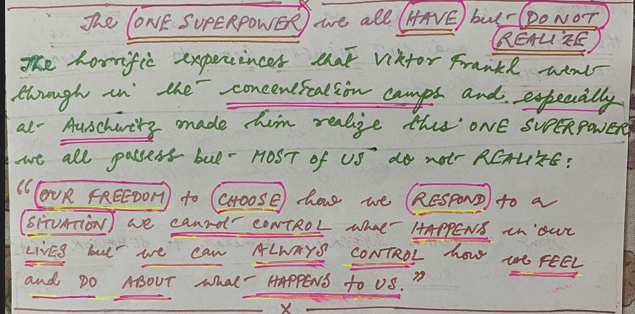 The ONE SUPERPOWER we all HAVE but DO NOT
REALIZE
The horrific experiences that Viktor Frankl went
through in the concentration camps and especially
at Auschwitz made him realize this ONE SUPERPOWER
we all possess but MOST OF US do not REALIZE:
"OUR FREEDOM to CHOOSE how we RESPOND to a
SITUATION we cannot CONTROL what HAPPENS in our
LIVES but we can ALWAYS CONTROL how we FEEL
and DO ABOUT what HAPPENS to US."
X